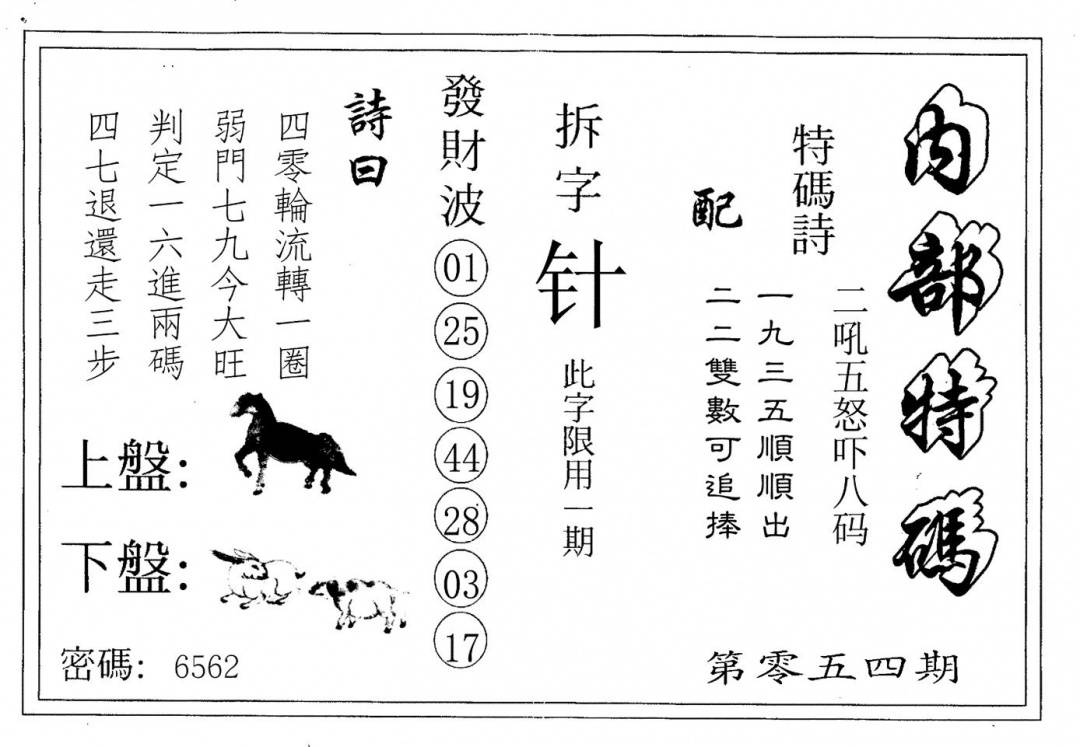 內部特碼
第零五四期
特碼詩
二吼五怒吓八码
一九三五順順出
配
二二雙數可追捧
拆字
针
此字限用一期
發財波
01
25
19
44
28
03
17
詩曰
四零輪流轉一圈
弱門七九今大旺
判定一六進兩碼
四七退還走三步
上盤：
下盤：
密碼：6562